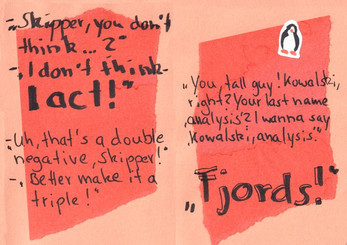 „Skipper, you don't
think...?"
-„I don't think-
I act!"
-„Uh, that's a double
negative, Skipper!"
-„Better make it a
triple!"
„You, tall guy! Kowalski,
right? Your last name
‚analysis'? I wanna say
Kowalski, analysis."
„Fjords!"